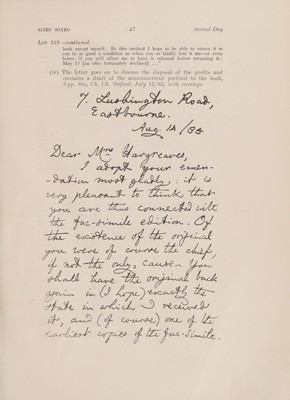 SECOND DAY
47
Second Day
LOT 319—continued
book except myself. By this method I hope to be able to return it to
you in as good a condition as when you so kindly lent it me—or even
better, if you will allow me to have it rebound before returning it:
May I? [an offer fortunately declined] ...."
(iv) The letter goes on to discuss the disposal of the profits and
contains a draft of the announcement prefixed to the book,
3 pp. 8vo, Ch. Ch. Oxford, July 15/85, with envelope
7. Lushington Road,
Eastbourne.
Aug. 14 /85
Dear Mrs Hargreaves,
I adopt your emen-
-dation most gladly: it is
very pleasant to think that
you are thus connected with
the fac-simile edition. Of
the existence of the original
you were of course the chief,
if not the only, cause. You
shall have the original back
again in (I hope) exactly the
state in which I received
it, and (of course) one of the
earliest copies of the fac-simile.